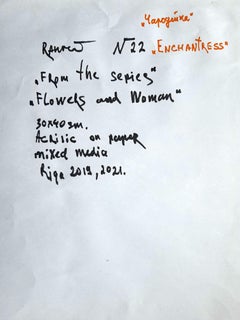 „Чародейка"
N 22 „ENCHANTRESS"
„From the series"
„Flowers and Woman"
30x40 sm.
Acrilic on paper
mixed media
Riga 2019, 2021.